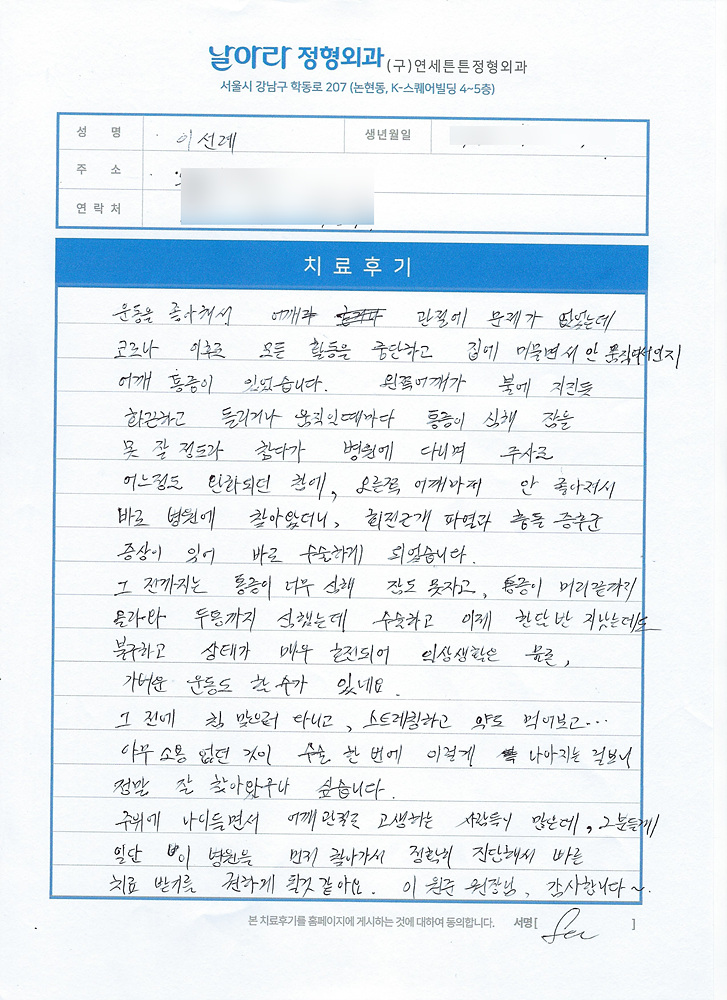 날아라 정형외과 (구)연세튼튼정형외과
서울시 강남구 학동로 207 (논현동, K-스퀘어빌딩 4~5층)
성 명 이선례 생년월일
주 소
연락처
치료후기
운동을 좋아해서 어깨와 관절에 문제가 없었는데
코로나 이후로 모든 활동을 중단하고 집에 머물면서 안 움직여서인지
어깨 통증이 있었습니다. 왼쪽어깨가 불에 지진듯
화끈하고 돌리거나 움직일때마다 통증이 심해 잠을
못 잘 정도라 참다가 병원에 다니며 주사로
어느정도 완화되던 찬에, 오른쪽 어깨마저 안 좋아져서
바로 병원에 찾아왔더니, 회전근개 파열과 충돌 증후군
증상이 있어 바로 수술하게 되었습니다.
그 전까지는 통증이 너무 심해 잠도 못자고, 통증이 머리끝까지
올라와 두통까지 심했는데 수술하고 이제 한달 반 지났는데도
불구하고 상태가 매우 호전되어 일상생활은 물론,
가벼운 운동도 할 수가 있네요.
그 전에 침 맞으러 다니고, 스트레칭하고 약도 먹어보고...
아무 소용 없던 것이 수술 한 번에 이렇게 나아지는 걸보니
정말 잘 찾아왔구나 싶습니다.
주위에 나이들면서 어깨관절로 고생하는 사람들이 많은데, 그분들께
일단 이 병원을 먼저 찾아가서 정확히 진단해서 빠른
치료 받기를 권하게 될것 같아요. 이 원준 원장님, 감사합니다~.
본 치료후기를 홈페이지에 게시하는 것에 대하여 동의합니다. 서명 [ ]